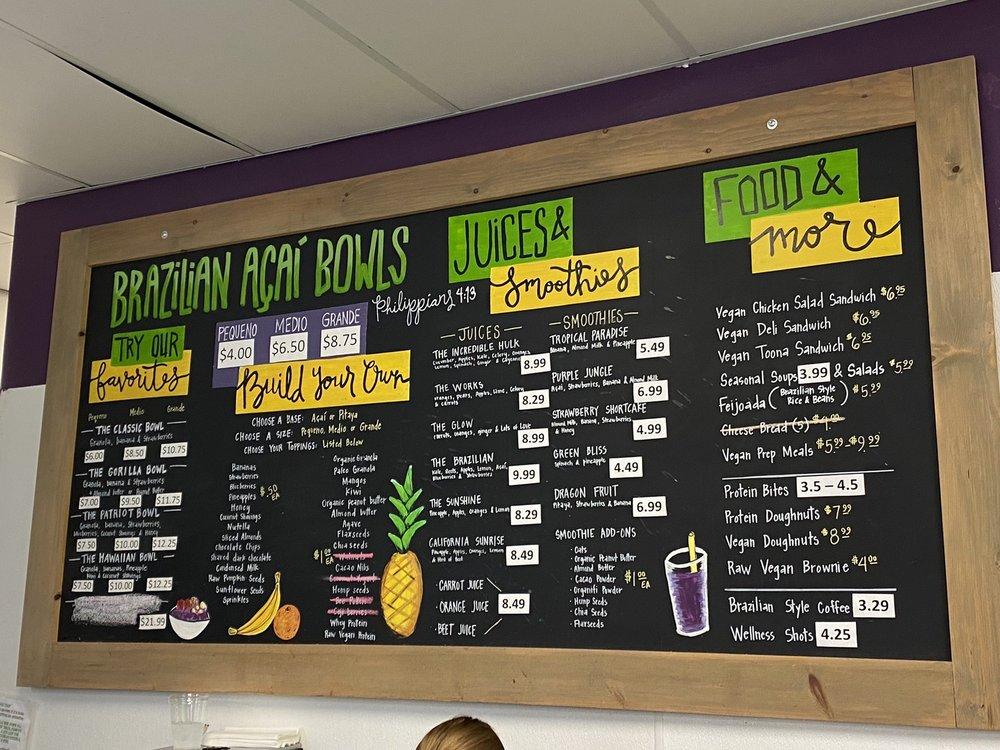 BRAZILIAN AÇAÍ BOWLS
Philippians 4:13
TRY OUR
favorites
Pequeno Medio Grande
THE CLASSIC BOWL
Granola, banana & strawberries
$6.00 $8.50 $10.75
THE GORILLA BOWL
Granola, banana & strawberries
Almond butter or Peanut Butter
$7.00 $9.50 $11.75
THE PATRIOT BOWL
Granola, banana, strawberries,
blueberries, Coconut Shavings & Honey
$7.50 $10.00 $12.25
THE HAWAIIAN BOWL
Granola, bananas, Pineapple
Kiwi & Coconut shavings
$7.50 $10.00 $12.25
$21.99
PEQUENO MEDIO GRANDE
$4.00 $6.50 $8.75
Build Your Own
CHOOSE A BASE: Açaí or Pitaya
CHOOSE A SIZE: Pequeno, Medio or Grande
CHOOSE YOUR TOPPINGS: Listed Below
Bananas
Strawberries
Blueberries
Pineapples
Honey
Coconut Shavings
Nutella
Sliced Almonds
Chocolate Chips
shaved dark chocolate
Condensed Milk
Raw Pumpkin Seeds
Sunflower Seeds
Sprinkles
$.50 EA
Organic Granola
Paleo Granola
Mangos
Kiwi
Organic peanut butter
Almond butter
Agave
Flaxseeds
Chia seeds
Cacao Nibs
Hemp seeds
Bee Pollen
Goji berries
Whey Protein
Raw Vegan Protein
$1.00 EA
JUICES &
Smoothies
JUICES
THE INCREDIBLE HULK
Cucumber, Apples, Kale, Celery, Oranges
Lemon, Spinach, Ginger & Cayenne
8.99
THE WORKS
oranges, pears, Apples, Lime, Celery
& carrots
8.29
THE GLOW
carrots, oranges, ginger & Lots of Love
8.99
THE BRAZILIAN
Kale, Beets, Apples, Lemon, Acai,
Blueberries & Strawberries
9.99
THE SUNSHINE
Pineapple, Apples, Oranges & Lemon
8.29
CALIFORNIA SUNRISE
Pineapple, Apples, Oranges, Lemon
& Hint of Beet
8.49
· CARROT JUICE
· ORANGE JUICE 8.49
· BEET JUICE
SMOOTHIES
TROPICAL PARADISE
Banana, Almond Milk & Pineapple
5.49
PURPLE JUNGLE
Açaí, Strawberries, Banana & Almond Milk
6.99
STRAWBERRY SHORTCAKE
Almond Milk, Banana, Strawberries
& Honey
4.99
GREEN BLISS
Spinach & pineapple
4.49
DRAGON FRUIT
Pitaya, Strawberries & Banana
6.99
SMOOTHIE ADD-ONS
· Oats
· Organic Peanut Butter
· Almond Butter
· Cacao Powder
· Organifi Powder
· Hemp Seeds
· Chia Seeds
· Flaxseeds
$1.00 EA
FOOD &
more
Vegan Chicken Salad Sandwich $6.95
Vegan Deli Sandwich $6.95
Vegan Toona Sandwich $6.95
Seasonal Soups 3.99 & Salads $5.99
Feijoada (Brazilian Style Rice & Beans) $5.29
Cheese Bread (3)
Vegan Prep Meals $5.99-$9.99
Protein Bites 3.5 – 4.5
Protein Doughnuts $7.99
Vegan Doughnuts $8.99
Raw Vegan Brownie $4.00
Brazilian Style Coffee 3.29
Wellness Shots 4.25